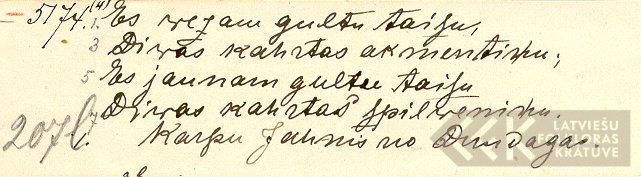 5174.(4) 1. Es wezam gultu taisu,
3 Diwas kahrtas akmentinu;
5 Es jaunam gultu taisu
7 Diwas kahrtas spilweninu.
207 Karpu Jahnis no Dundagas
LATVIEŠU
FOLKLORAS
KRĀTUVE